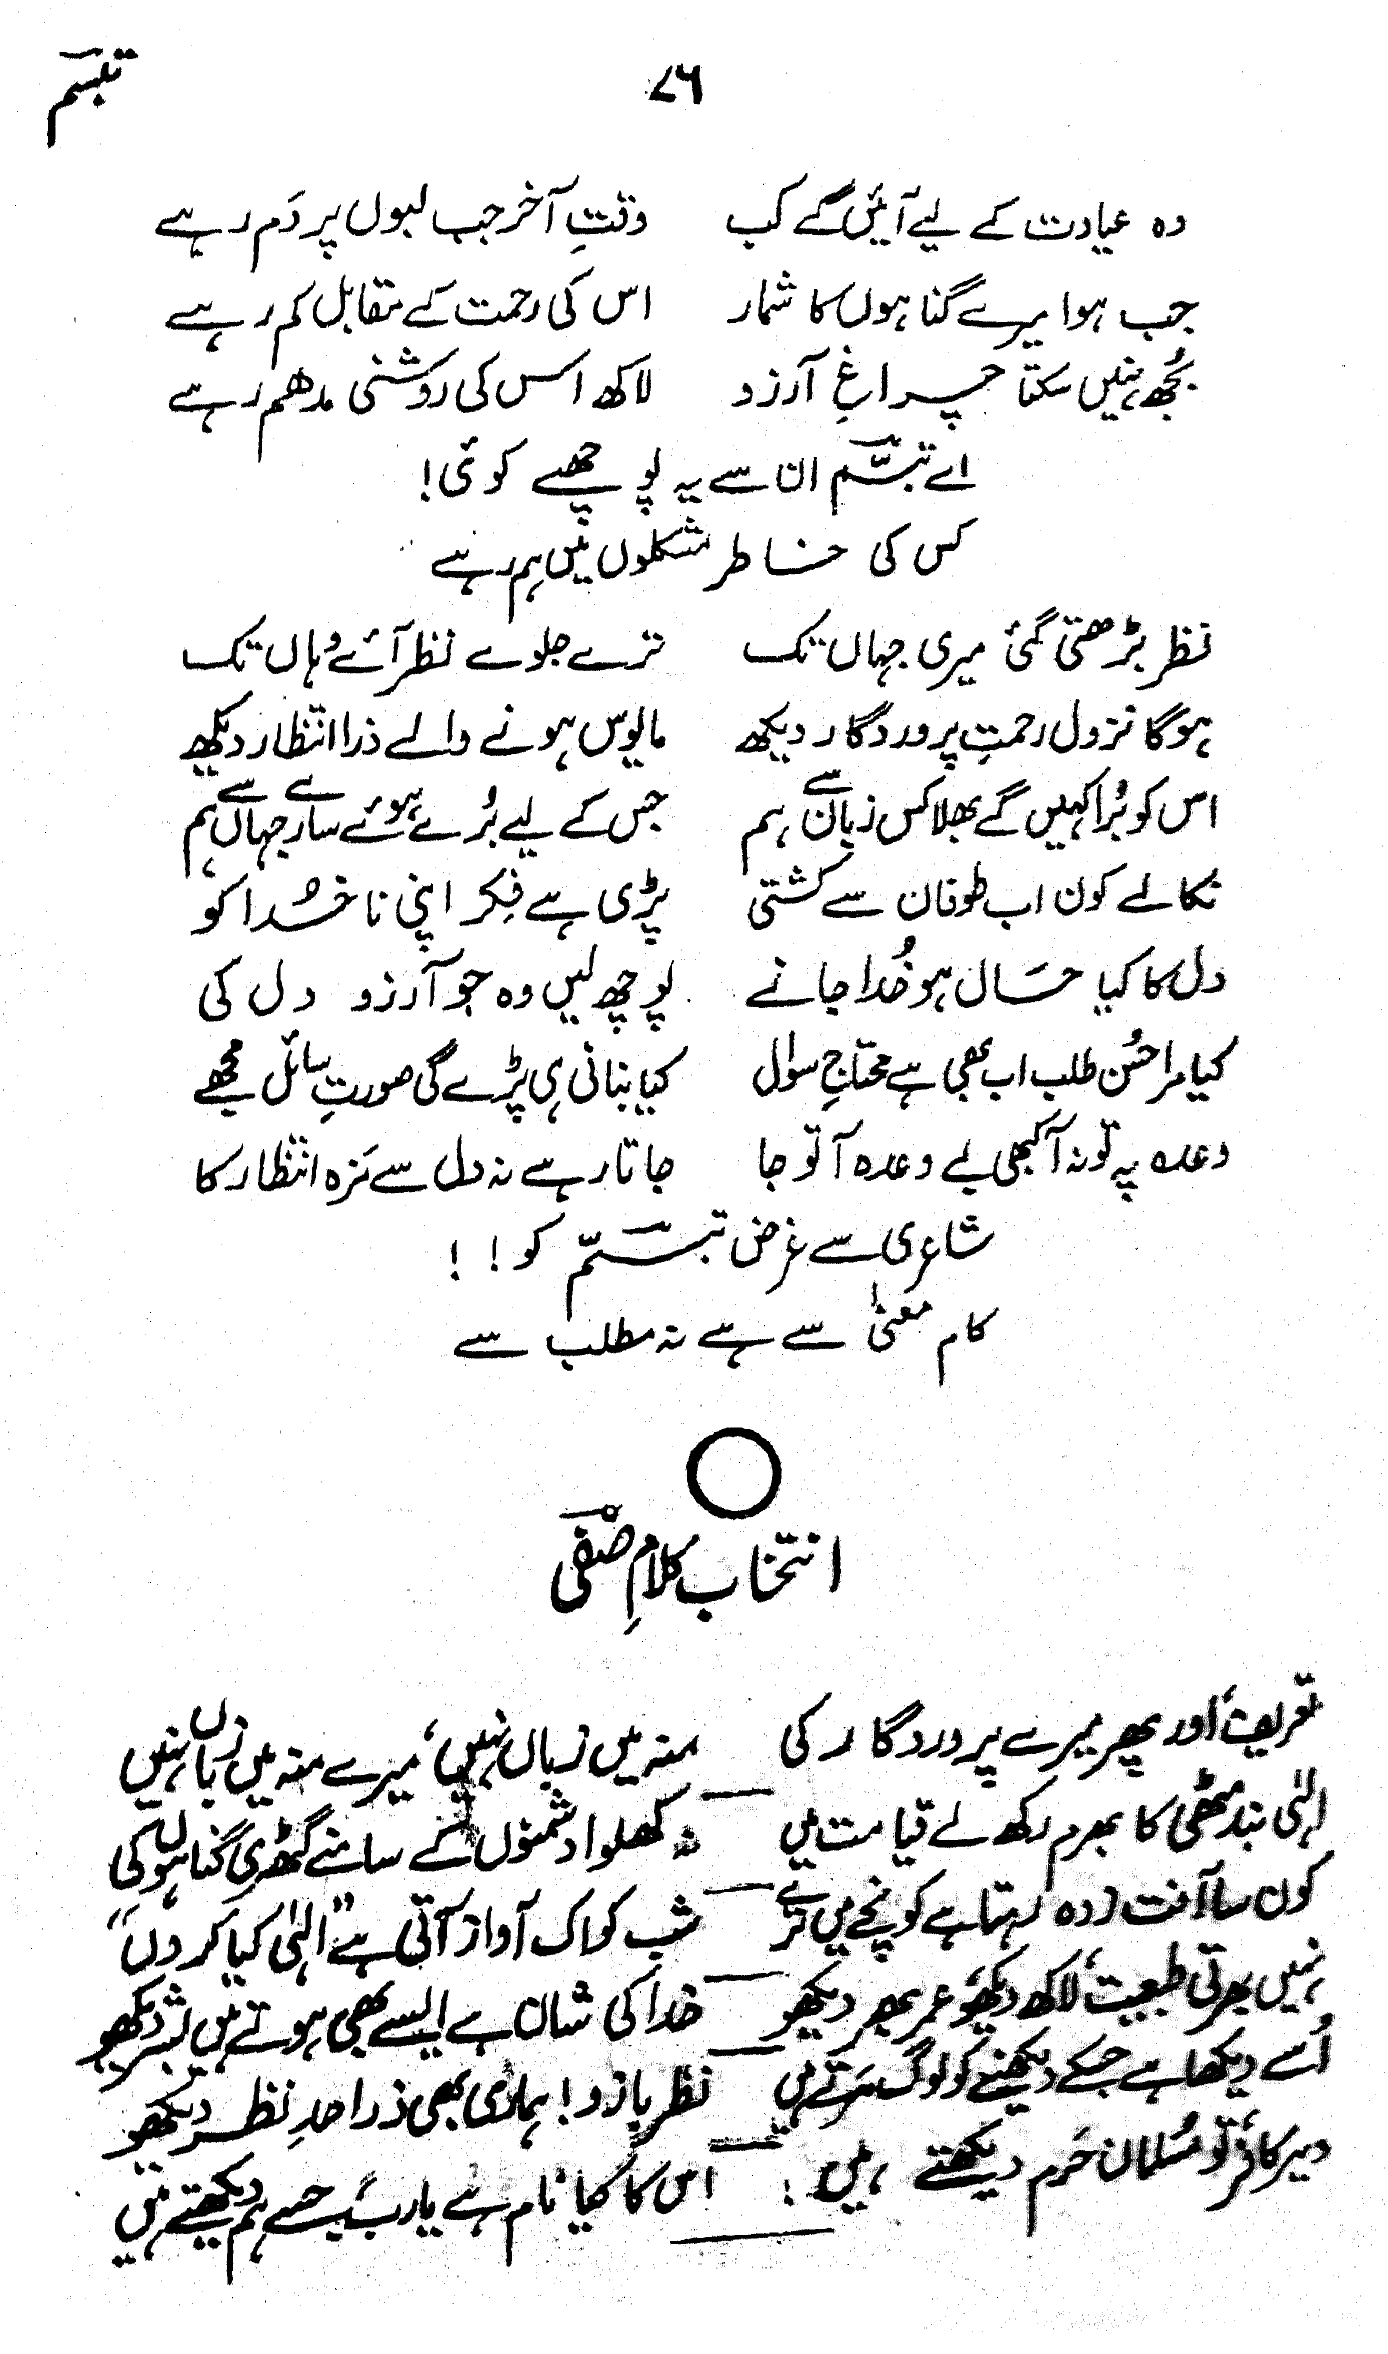 ۷۶ تبسّم
وہ عیادت کے لیے آئیں گے کب وقتِ آخر جب لبوں پر دَم رہے
جب ہوا میرے گناہوں کا شمار اس کی رحمت کے مقابل کم رہے
بُجھ نہیں سکتا چراغِ آرزو لاکھ اس کی روشنی مدھم رہے
اے تبسّم ان سے یہ پوچھے کوئی!
کس کی خاطر مشکلوں میں ہم رہے
نظر بڑھتی گئی میری جہاں تک ترے جلوے نظر آئے وُہاں تک
ہوگا نزولِ رحمتِ پروردگار دیکھ مایوس ہونے والے ذرا انتظار دیکھ
اس کو بُرا کہیں گے بھلا کس زبان سے ہم جس کے لیے بُرے ہوئے سارے جہاں سے ہم
نکالے کون اب طوفان سے کشتی پڑی ہے فِکر اپنی ناخُدا کو
دل کا کیا حَال ہو خُدا جانے پوچھ لیں وہ جو آرزو دل کی
کیا مرا حسُنِ طلب اب بھی ہے محتاجِ سوال کیا بنانی ہی پڑے گی صورتِ سائل مجھے
وعدہ پہ تو نہ آ کبھی بے وعدہ آ تو جا جاتا رہے نہ دل سے مَزہ انتظار کا
شاعری سے غرض تبسّم کو!!
کام معنیٰ سے ہے نہ مطلب سے
انتخاب کلامِ صفی
تعریف، اور پھر میرے پروردگار کی منہ میں زباں نہیں، میرے منہ میں زباں نہیں
الٰہی بند مٹھی کا بھرم رکھ لے قیامت میں نہ کھلوا دشمنوں کے سامنے گٹھری گناہوں کی
کون سا آفت زدہ رہتا ہے کوچے میں ترے شب کو اک آواز آتی ہے "الٰہی کیا کروں"
نہیں بھرتی طبیعت، لاکھ دیکھو، عمر بھر دیکھو خدا کی شان ہے ایسے بھی ہوتے ہیں بشر دیکھو
اُسے دیکھا ہے جسکے دیکھنے کو لوگ مرتے ہیں نظر بازو! ہماری بھی ذرا حدِ نظر دیکھو
دیر کافر، تو مسُلمان حَرم دیکھتے ہیں! اس کا کیا نام ہے یارب جسے ہم دیکھتے ہیں